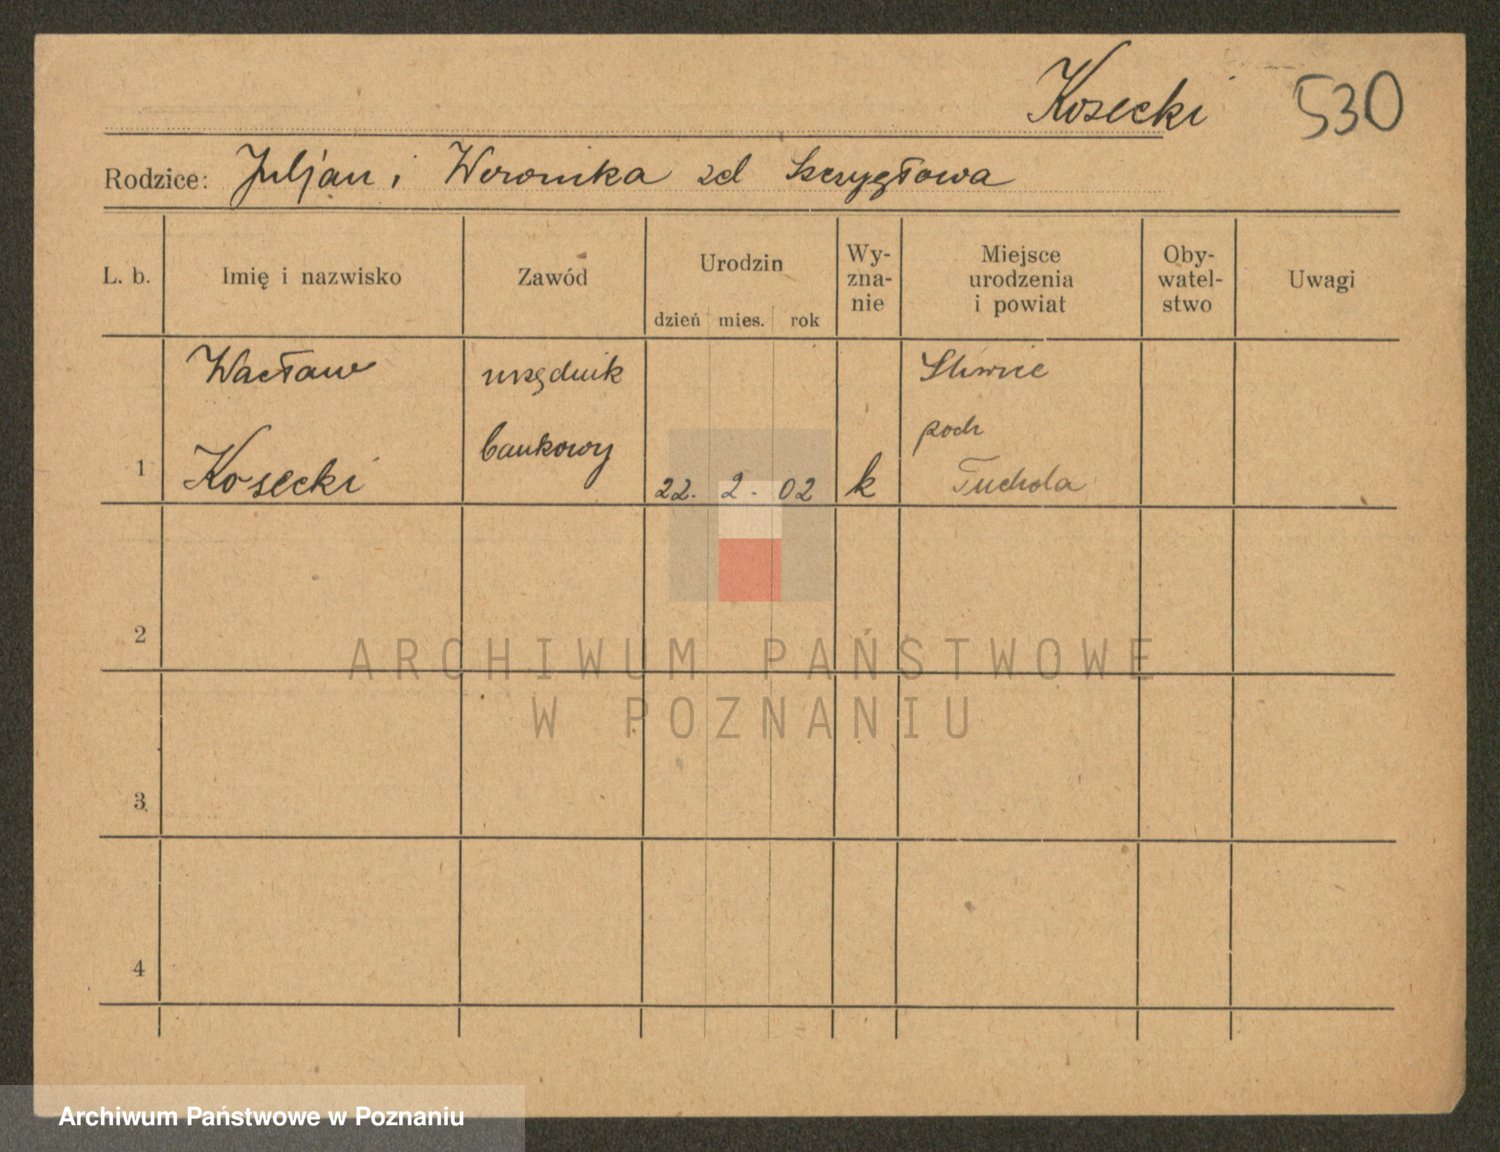 Kosecki 530
Rodzice: Juljan i Weronika zd Szczygłowa
L. b. Imię i nazwisko Zawód Urodzin dzień mies. rok Wy-zna-nie Miejsce urodzenia i powiat Oby-watel-stwo Uwagi
Wacław urzędnik Śliwice
bankowy
1 Kosecki 22. 2. 02 k Tuchola
2
ARCHIWUM PAŃSTWOWE
W POZNANIU
3
4
Archiwum Państwowe w Poznaniu